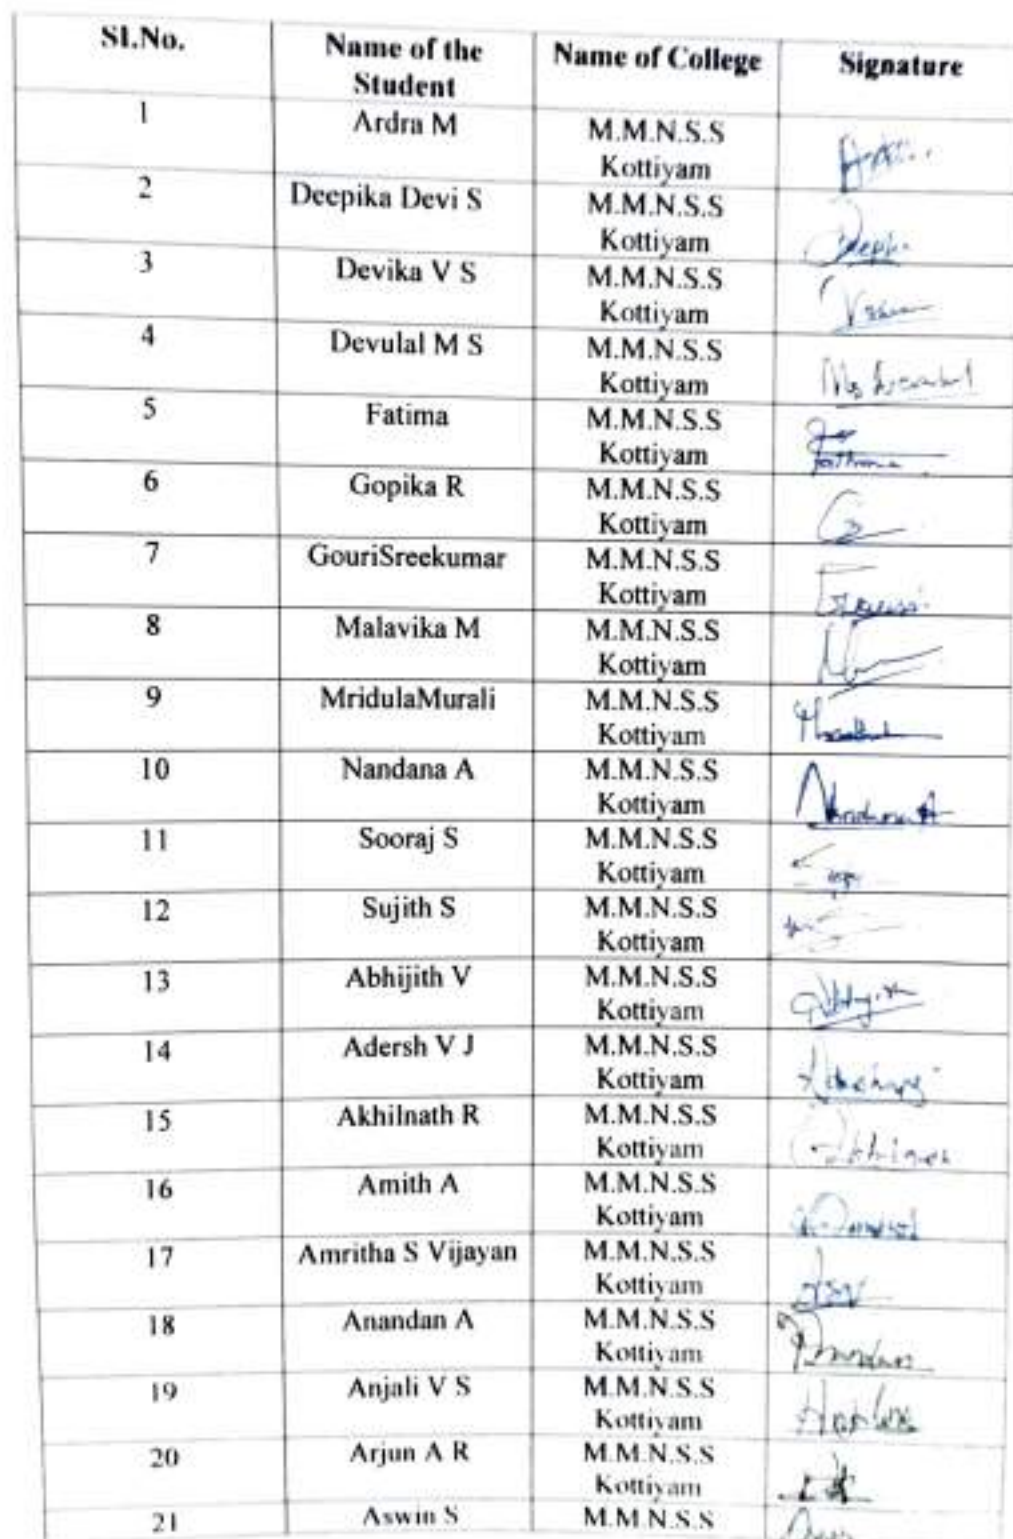 SI.No. Name of the Student Name of College Signature
1 Ardra M M.M.N.S.S Kottiyam
2 Deepika Devi S M.M.N.S.S Kottiyam
3 Devika V S M.M.N.S.S Kottiyam
4 Devulal M S M.M.N.S.S Kottiyam
5 Fatima M.M.N.S.S Kottiyam
6 Gopika R M.M.N.S.S Kottiyam
7 GouriSreekumar M.M.N.S.S Kottiyam
8 Malavika M M.M.N.S.S Kottiyam
9 MridulaMurali M.M.N.S.S Kottiyam
10 Nandana A M.M.N.S.S Kottiyam
11 Sooraj S M.M.N.S.S Kottiyam
12 Sujith S M.M.N.S.S Kottiyam
13 Abhijith V M.M.N.S.S Kottiyam
14 Adersh V J M.M.N.S.S Kottiyam
15 Akhilnath R M.M.N.S.S Kottiyam
16 Amith A M.M.N.S.S Kottiyam
17 Amritha S Vijayan M.M.N.S.S Kottiyam
18 Anandan A M.M.N.S.S Kottiyam
19 Anjali V S M.M.N.S.S Kottiyam
20 Arjun A R M.M.N.S.S Kottiyam
21 Aswin S M.M.N.S.S